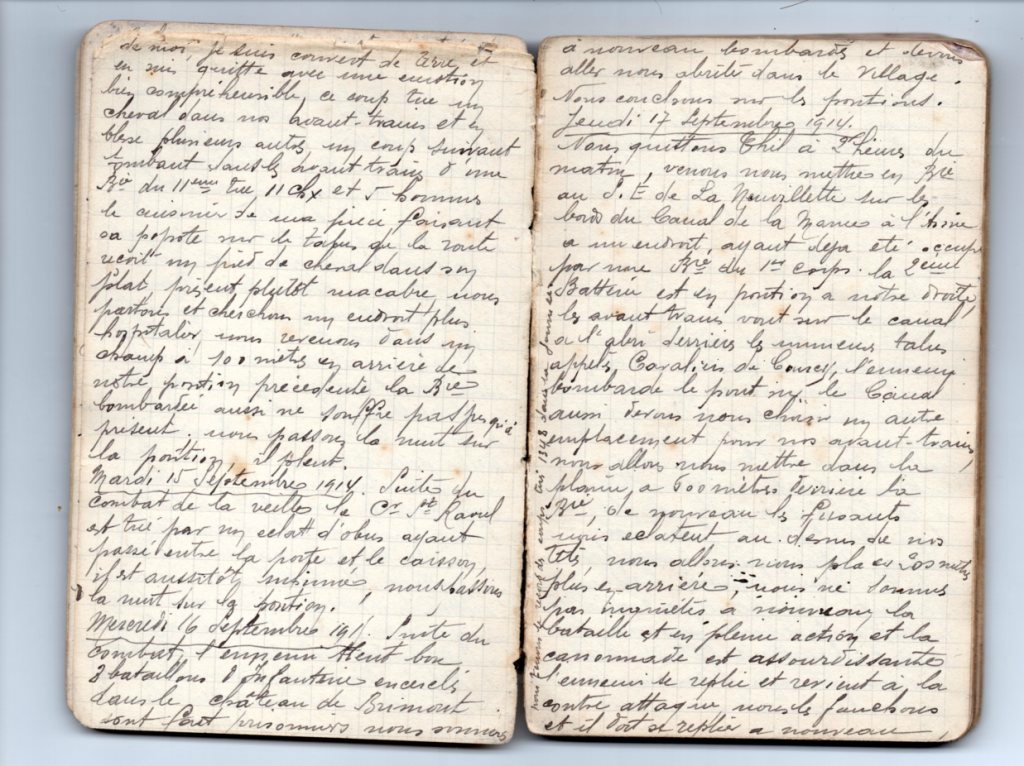 de moi, je suis couvert de terre et
en mis quitte avec une emotion
bien comprehensible, ce coup tue un
cheval dans nos avant-trains et en
blesse plusieurs autres, un coup suivant
tombant dans les avant trains d'une
Bie du 11eme tue, 11 chx et 5 hommes
le cuisinier de ma pièce faisant
sa popote sur le talus de la route
reçoit un pied de cheval dans son
plat, présent plutôt macabre, nous
partons et cherchons un endroit plus
hospitalier, nous revenons dans un
champ à 100 mètres en arrière de
notre position précedente la Bie
bombardée aussi ne souffre pas jusqu'à
présent, nous passons la nuit sur
la position, il pleut.
Mardi 15 Septembre 1914. Suite du
combat de la veille le Cr Raoul
est tué par un eclat d'obus ayant
passé entre la porte et le caisson,
il est aussitôt inhumé, nous passons
la nuit sur la position.
Mercredi 16 Septembre 191 . Suite du
combat, l'ennemi tient bon
2 bataillons d'Infanterie encerclés
dans le château de Brimont
sont faits prisonniers nous sommes
à nouveau bombardés et devons
aller nous abrités dans le village.
Nous couchons sur les positions.
Jeudi 17 Septembre 1914.
Nous quittons Thil à 2 heures du
matin, venons nous mettre en Bie
au S.E de La Neuvillette sur les
bords du Canal de la Marne à l'Aisne
a un endroit, ayant déja été occupé
par une Bie du 1er corps. la 2eme
Batterie est en position a notre droite,
les avant trains vont sur le canal
a l'abri derriere les immenses talus
appelés, Cavaliers de Courcy, l'ennemi
bombarde le pont sur le Canal
aussi devons nous choisir un autre
emplacement pour nos avant-trains,
nous allons nous mettre dans la
plaine, a 600 mètres derrière la
Bie, de nouveau les fusants
nous eclatent au dessus de nos
têtes, nous allons nous placer 200 mètres
plus en arrière, nous ne sommes
pas inquiétés a nouveau, la
bataille est en pleine action et la
canonnade est assourdissante
l'ennemi se replie et revient à la
contre attaque nous les fauchons
et il doit se replier a nouveau,